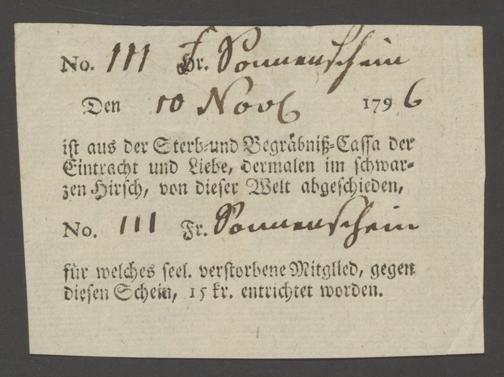 No. 111 Fr. Sonnenschein
Den 10 Novb 1796
ist aus der Sterb-und Begräbniß-Cassa der
Eintracht und Liebe, dermalen im schwar-
zen Hirsch, von dieser Welt abgeschieden,
No. 111 Fr. Sonnenschein
für welches seel. verstorbene Mitglied, gegen
diesen Schein, 15 kr. entrichtet worden.